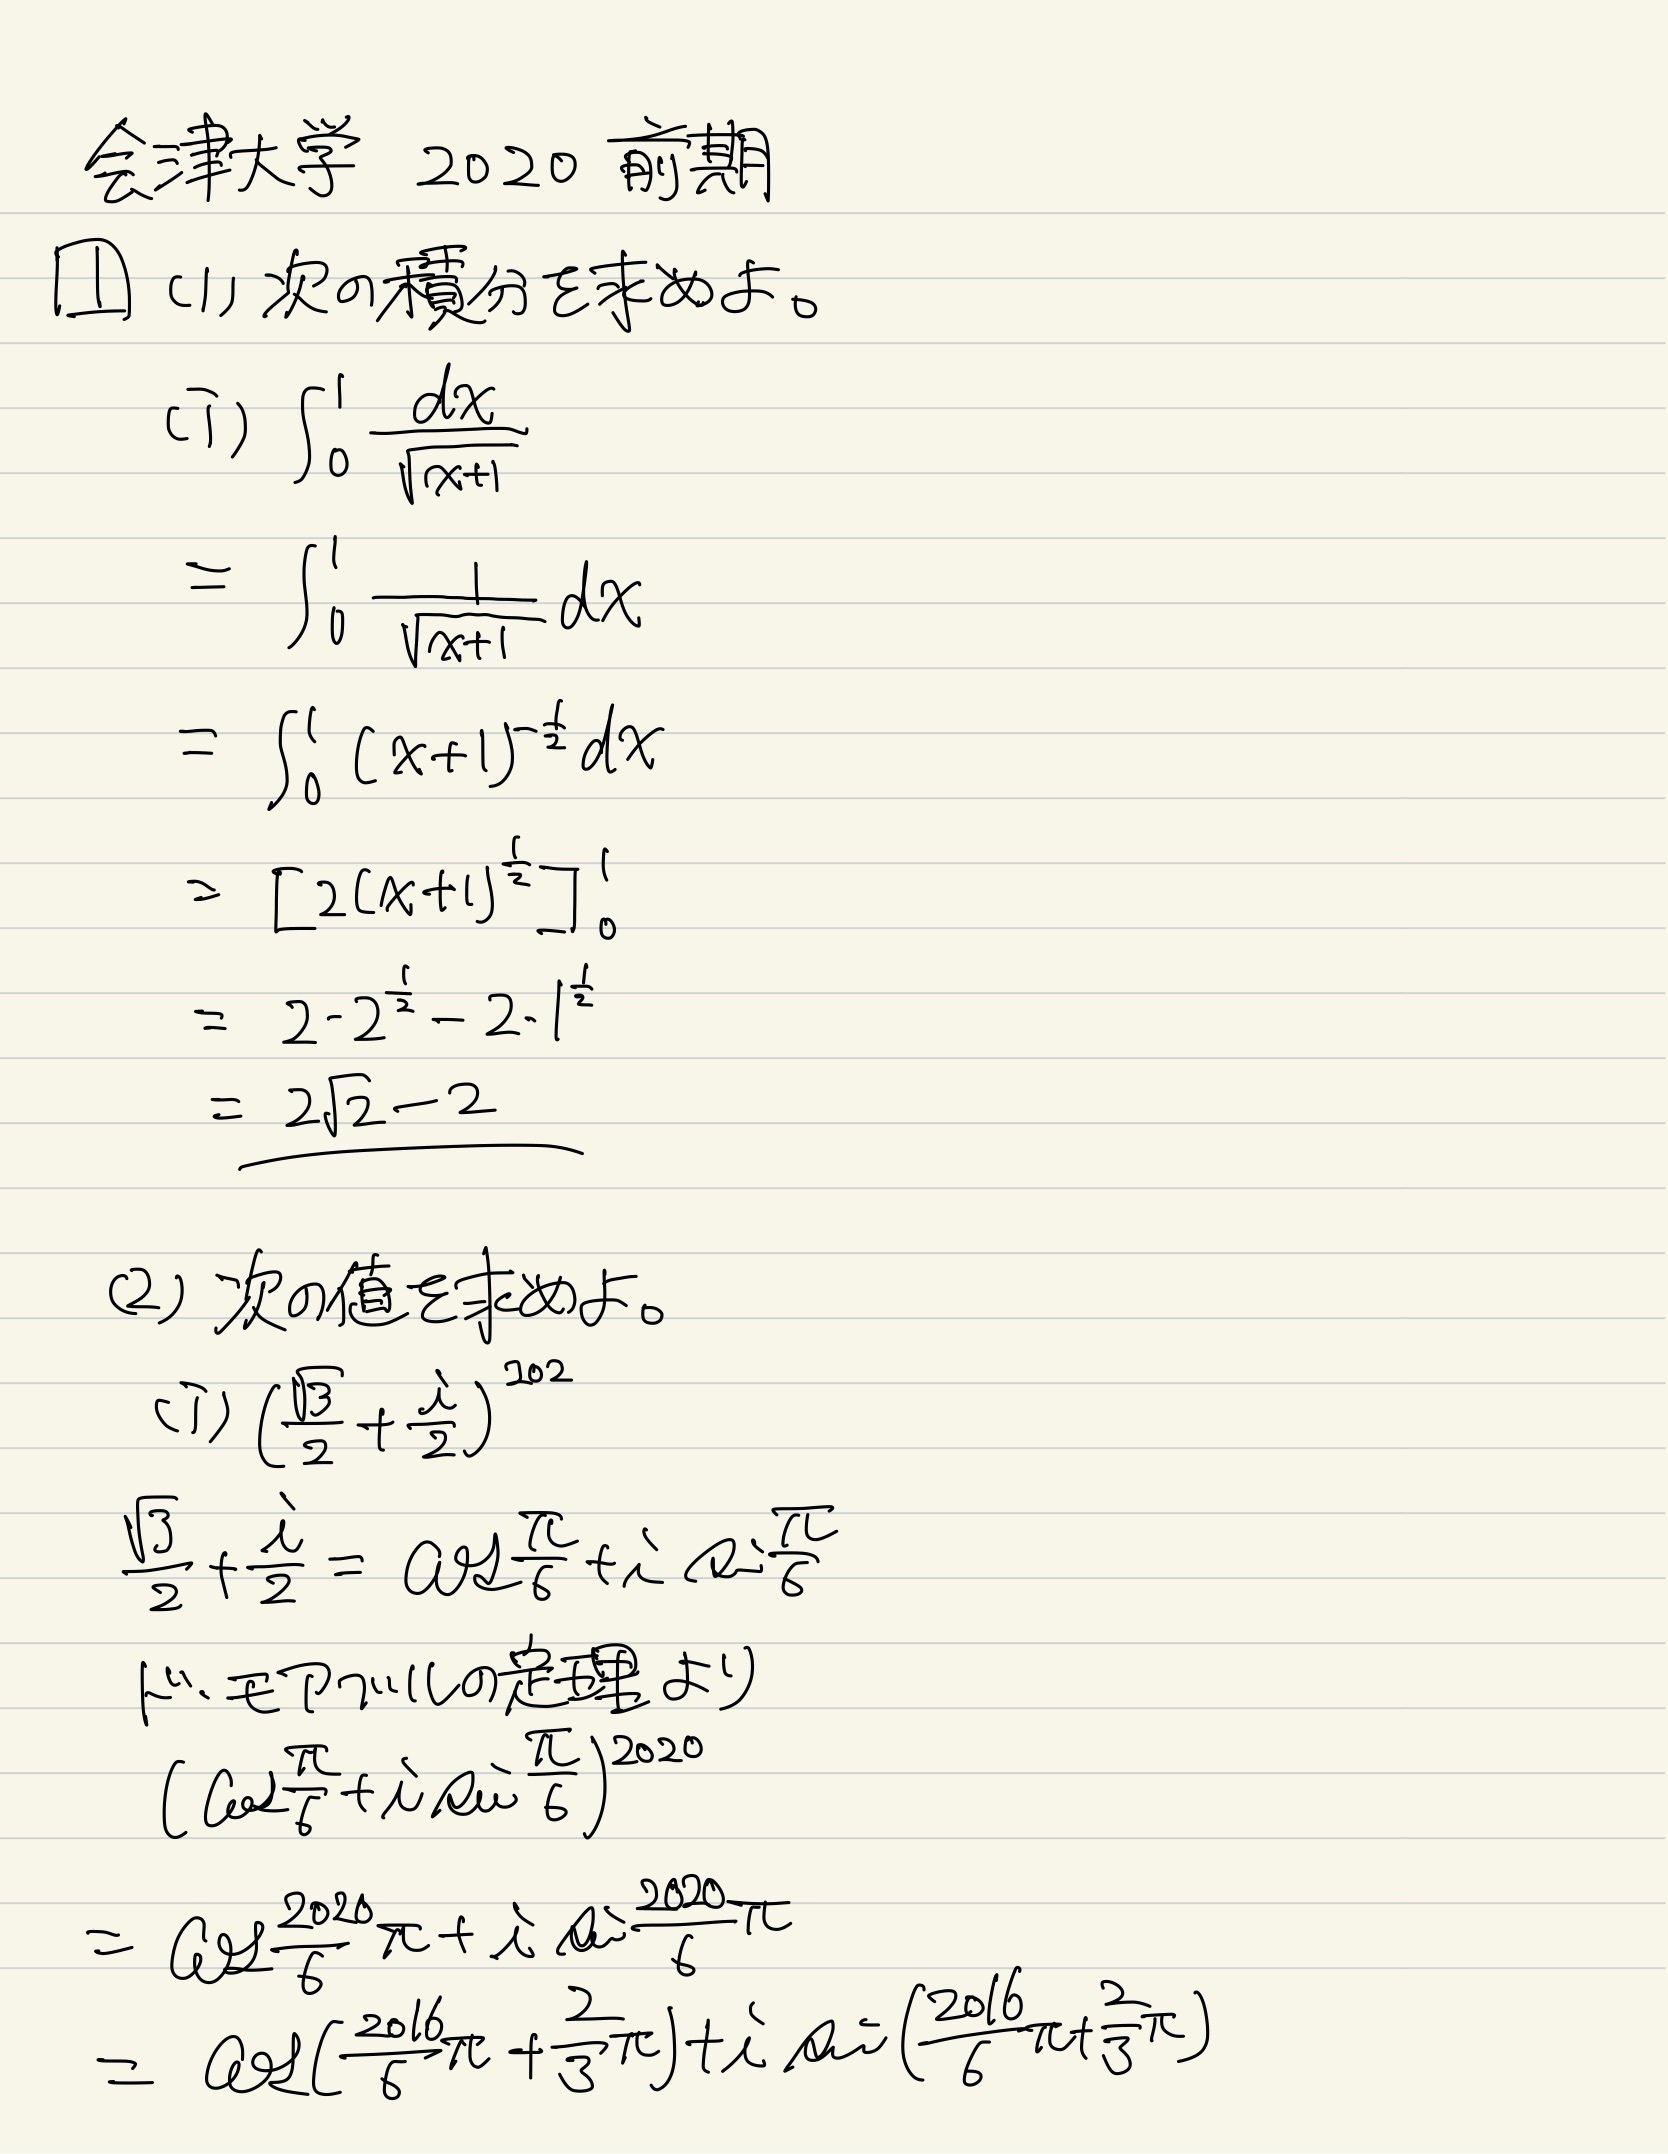 会津大学 2020 前期
1 (1) 次の積分を求めよ。
(i) ∫_0^1 dx/√(x+1)
= ∫_0^1 1/√(x+1) dx
= ∫_0^1 (x+1)^{-1/2} dx
= [2(x+1)^{1/2}]_0^1
= 2・2^{1/2} − 2・1^{1/2}
= 2√2 − 2
(2) 次の値を求めよ。
(i) (√3/2 + i/2)^{202}
√3/2 + i/2 = cos π/6 + i sin π/6
ド・モアブルの定理より
(cos π/6 + i sin π/6)^{2020}
= cos 2020/6 π + i sin 2020/6 π
= cos(2016/6 π + 2/3 π) + i sin(2016/6 π + 2/3 π)